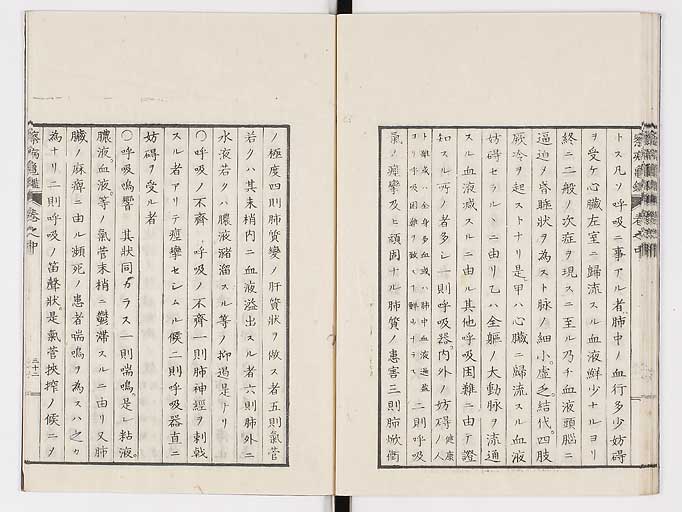 トス凡ソ呼吸ニ事アル者肺中ノ血行多少妨碍
ヲ受ケ心臓左室ニ歸流スル血液鮮少ナルヨリ
終ニ二般ノ次症ヲ現スニ至ル乃チ血液頭腦ニ
逼迫ヲ昏睡狀ヲ為スト脉ノ細小虛乏結代四肢
厥冷ヲ起ストナリ是甲ハ心臓ニ歸流スル血液
妨碍セラルヽニ由リ乙ハ全軀ノ大動脉ヲ流通
スル血液減スルニ由ル其他呼吸困難ニ由テ證
知スル所ノ者多シ一則呼吸器內外ノ妨碍健康ノ人
ト雖或ハ全身多血或ハ肺中血液過盈
コリ呼吸困難ヲ致ス 二則呼吸
氣ノ痙攣及ヒ頑固ナル肺質ノ患害三則肺焮衝
ノ極度四則肺質變ノ肝質狀ヲ做ス者五則氣管
若クハ其末梢內ニ血液溢出スル者六則肺外ニ
水液若クハ膿液瀦溜スル等ノ抑遏是ナリ
〇呼吸ノ不齊 呼吸ノ不齊一則肺神經ヲ刺戟
スル者アリテ痙攣セシムル候二則呼吸器直ニ
妨碍ヲ受ル者
〇呼吸鳴響 其狀同カラス一則喘鳴是レ粘液
膿液血液等ノ氣管末梢ニ鬱滯スルニ由リ又肺
臓ノ麻痺ニ由ル瀕死ノ患者喘鳴ヲ為スハ之カ
為ナリ二則呼吸ノ笛聲狀是氣管挾搾ノ候ニヲ
卷之中
三十二